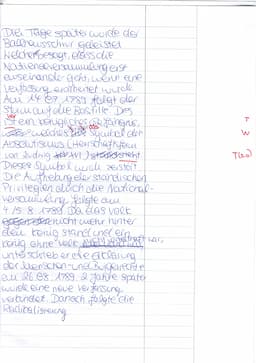 Drei Tage später wurde der
Ballhausschwur geleistet
welcher besagt, dass die
Nationalversammlung erst
auseinander geht, wenn eine
Verfassung erarbeitet wurde
Am 14.07.1789 folgt der
Sturm auf die Bastille. Das
ist ein königliches Gefängnis
welches das Symbol der
Absolutismus (Herrschaftsform
von Ludwig XVI)
Dieser Symbol wird zerstört
Die Aufhebung der ständischen
Privilegien durch die National-
versammlung folgte am
4/5.8.1789. Da das Volk
nicht mehr hinter
dem König stand und ein
König ohne Volk
unterschrieb er die Erklärung
der Menschen- und Bürgerrechte
am 26.08.1789. 2 Jahre später
wurde eine neue Verfassung
verkündet. Danach folgte die
Radikalisierung
T
W